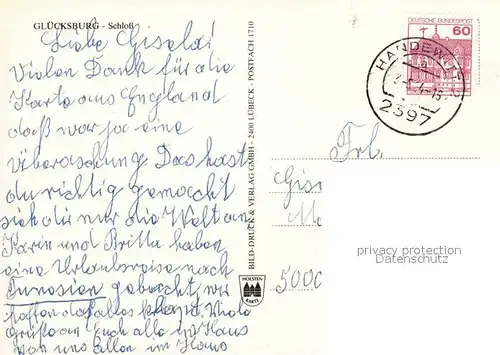 GLÜCKSBURG - Schloß
Liebe Gisela!
Vielen Dank für die
Karte aus England
daß war ja eine
Überraschung Das hast
du richtig gemacht
sieh dir nur die Welt an
Karin und Britta haben
eine Urlaubsreise nach
Tunesien gebucht, wir
hoffen daß alles klappt. Viele
Grüße an Euch alle im Haus
von uns allen im Haus
BILD-DRUCK & VERLAG GMBH · 2400 LÜBECK · POSTFACH 1710
HOLSTEN
KARTE
DEUTSCHE BUNDESPOST
60
HANDEWITT
2397
Frl.
Gis
5000
privacy protection
Datenschutz